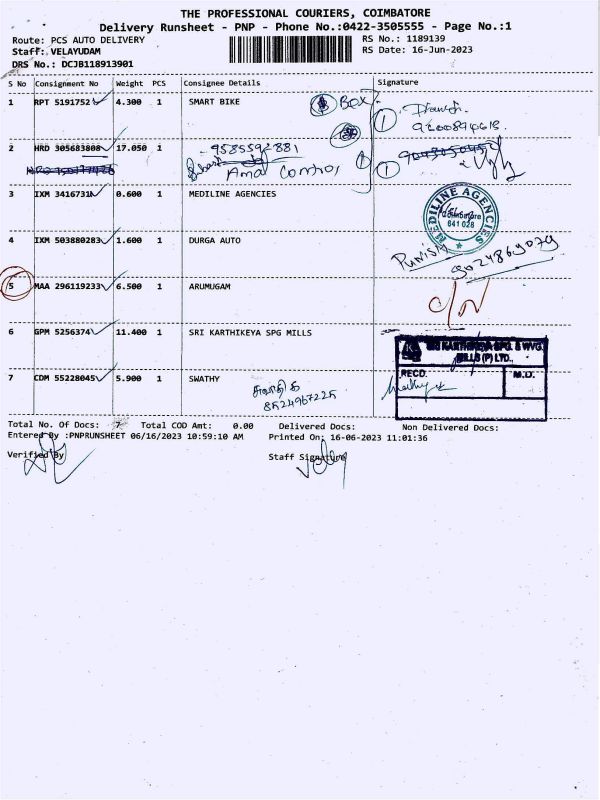 THE PROFESSIONAL COURIERS, COIMBATORE
Delivery Runsheet - PNP - Phone No.:0422-3505555 - Page No.:1
Route: PCS AUTO DELIVERY
RS No.: 1189139
Staff: VELAYUDAM
RS Date: 16-Jun-2023
DRS No.: DCJB118913901
S No Consignment No Weight PCS Consignee Details Signature
1 RPT 5191752 4.300 1 SMART BIKE
BOX
1
2 HRD 305683808 17.050 1
9585592881
1
3 IXM 3416731 0.600 1 MEDILINE AGENCIES
MEDILINE AGENCIES
Coimbatore
641 028
4 IXM 503880283 1.600 1 DURGA AUTO
9024869079
5 MAA 296119233 6.500 1 ARUMUGAM
6 GPM 5256374 11.400 1 SRI KARTHIKEYA SPG MILLS
SRI KARTHIKEYA SPG. & WVG.
MILLS (P) LTD.,
RECD. M.D.
7 CDM 55228045 5.900 1 SWATHY
சுவாதி
8524967225
Total No. Of Docs: 7 Total COD Amt: 0.00 Delivered Docs: Non Delivered Docs:
Entered By :PNPRUNSHEET 06/16/2023 10:59:10 AM Printed On: 16-06-2023 11:01:36
Verified By
Staff Signature